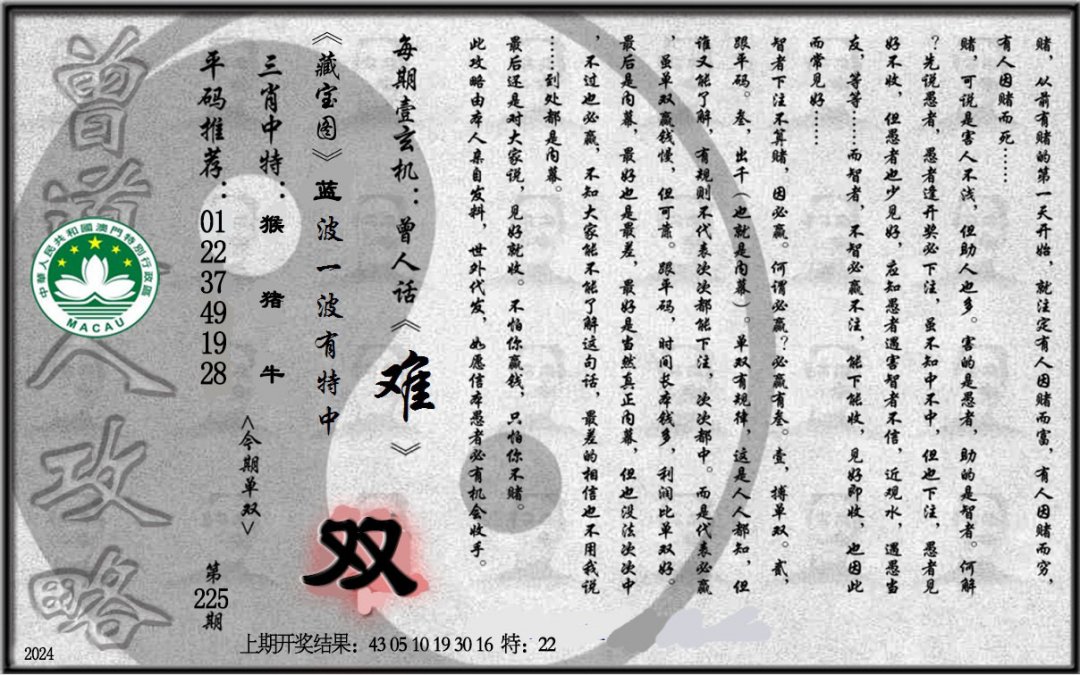 赌，从前有赌的第一天开始，就注定有人因赌而富，有人因赌而穷，
有人因赌而死……
赌，可说是害人不浅，但助人也多。害的是愚者，助的是智者。何解
？先说愚者，愚者逢开奖必下注，虽不知中不中，但也下注，愚者见
好不收，但愚者也少见好，应知愚者遇害智者不信，近观水，遇愚当
友，等等……而智者，不智必赢不注，能下能收，见好即收，也因此
而常见好……
智者下注不算赌，因必赢。何谓必赢？必赢有叁。壹，搏单双。贰，
跟平码。叁，出千（也就是内幕）。单双有规律，这是人人都知，但
谁又能了解，有规则不代表次次都能下注，次次都中。而是代表必赢
，虽单双赢钱慢，但可靠。跟平码，时间长本钱多，利润比单双好。
最后是内幕，最好也是最差，最好是当然真正内幕，但也没法次次中
，不过也必赢，不知大家能不能了解这句话，最差的相信也不用我说
……到处都是内幕。
最后还是对大家说，见好就收。不怕你赢钱，只怕你不赌。
此攻略由本人亲自发料，世外代发，如愿信本愚者必有机会收手。
每期壹玄机：曾人话《难》
《藏宝图》蓝波一波有特中
双
三肖中特：猴 猪 牛
<今期单双>
平码推荐：01 22 37 49 19 28
第225期
曾道人攻略
中華人民共和國澳門特別行政區
MACAU
上期开奖结果：43 05 10 19 30 16 特：22
2024